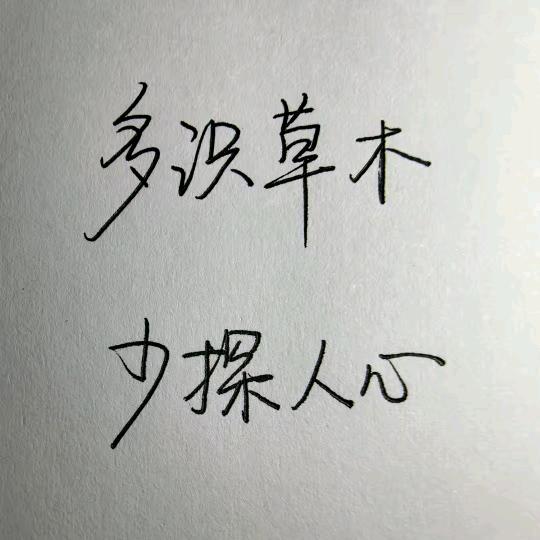 多识草木
少探人心